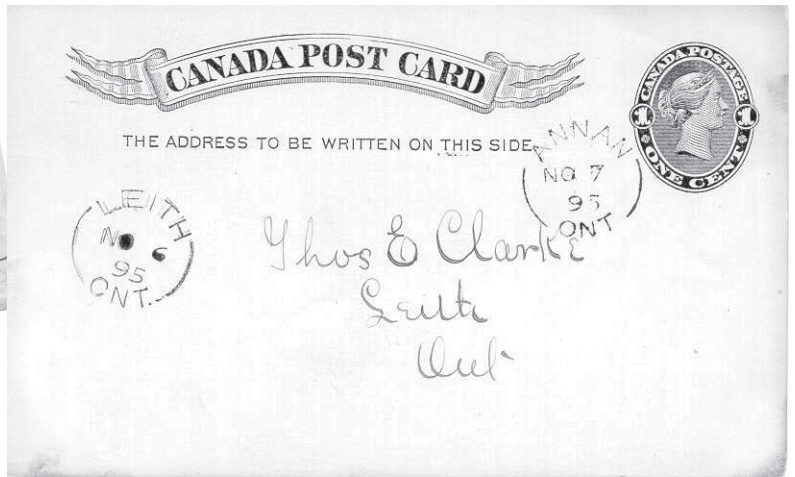 CANADA POST CARD
CANADA POSTAGE
1 1
ONE CENT
THE ADDRESS TO BE WRITTEN ON THIS SIDE
ANNAN
NO 7
95
ONT
LEITH
NO 6
95
ONT.
Thos E Clarke
Leith
Ont